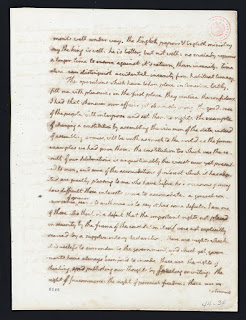 words well under way. the English papers & English ministry
say the king is well. he is better, but not well: no malady requires
a longer time to ensure against it's return, than insanity. time
alone can distinguish accidental insanity from habitual lunacy.
The operations which have taken place in America lately,
fill me with pleasure. in the first place they realize the confidence
I had that whenever our affairs get obviously wrong, the good sense
of the people will interpose and set them to rights. the example
of changing a constitution by assembling the wise men of the state, instead
of assembling armies, will be worth as much to the world as the former
examples we had given them. the constitution too which was the re-
sult of our deliberations is unquestionably the wisest ever yet presented
to men, and some of the accommodations of interest which it has adop-
ted are greatly pleasing to me who have before had occasions of seeing
how difficult those interests were to accommodate. a general concurrence
of opinion seems to authorize us to say it has some defects. I am one
of those who think it a defect that the important rights, not placed
in security by the frame of the constitution itself, were not explicitly
secured by a supplementary declaration. there are rights which
it is useless to surrender to the government, and which yet, govern-
ments have always been fond to invade. these are the rights of
thinking, and publishing our thoughts by speaking or writing: the
right of free commerce: the right of personal freedom. there are in-